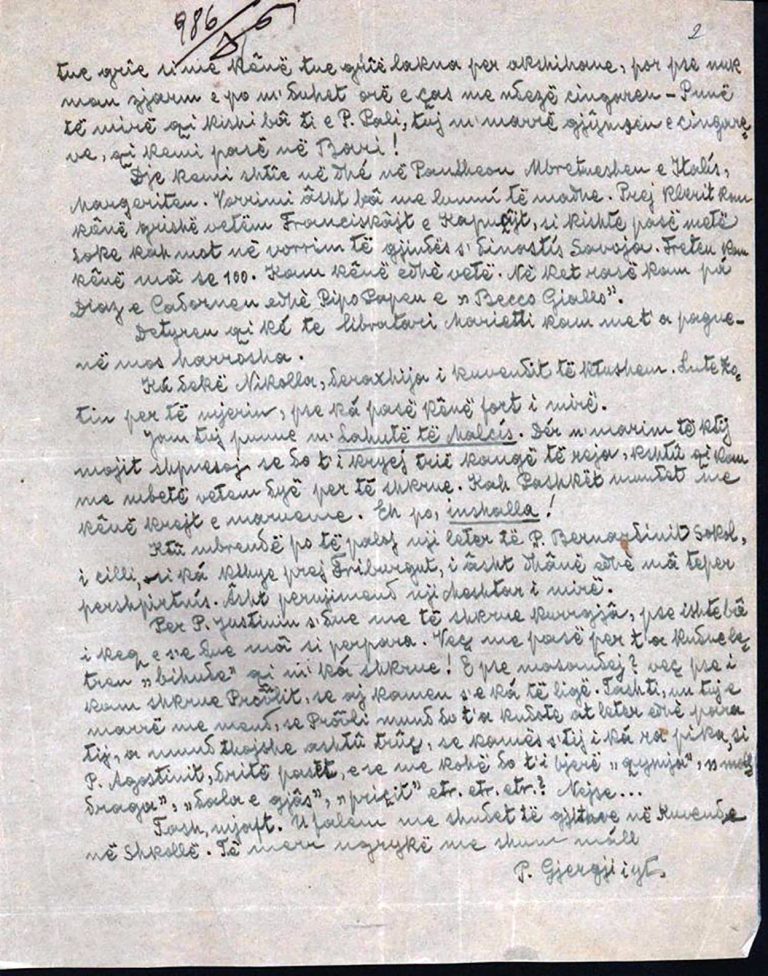 986
2
tue grîe u me kênë tue grîe lakna per akshihane, por pse nuk
man zjarm e po m'duhet orë e ças me ndezë cingaren – Punë
të mirë qi kishi bâ ti e P. Pali, tuj m'marrë gjymsen e cingare
ve, qi kemi pasë në Bari!
Dje kemi shtîe në dhé në Pantheon Mbretneshen e Italís,
Margeriten. Vorrimi âsht bâ me lumní të madhe. Prej klerit kan
kênë grishë vetëm Franciskâjt e Kapuçjt, si kishte pasë metë
doke kah mot në vorrim të gjindës s' dinastís Savoja. Freten kan
kênë mâ se 100. Kam kênë edhè vetë. Në ket rasë kam pá
Diaz e Cadornen edhè Pipo Popen e „Becco Giallo".
Detyren qi ká te libratari Marietti kam me t'a pague-
në mos harrosha.
Ká dekë Nikolla, deraxhija i kuvendit të ktushem. Lute Zo-
tin per të mjerin, pse ká pasë kênë fort i mirë.
Jam tuj punue n' Lahutë të Malcís. Dér n'marim të ktij
mojit shpresoj se do t'i kryej trií kangë të reja, kshtû qi kan
me mbetë vetem dyë per të shkrue. Kah Pashkët mundet me
kênë krejt e marueme. Eh po, inshalla!
Ktû mbrendë po të paloj nji leter të P. Bernardinit Sokol,
i cilli, si ká kthye prej Friburgut, i âsht dhânë edhè mâ teper
pershpirtnís. Âsht perujimend nji meshtar i mirë.
Per P. Justinin s'due me të shkrue kurrgjâ, pse ishte bâ
i keq e s'e due mâ si perpara. Veç me pasë per t'a kudue le
tren „bihude" qi m'ká shkrue! E pse mosandej? veç pse i
kam shkrue Prõblit, se aj kamen s'e ká të ligë. Tashti, un tuj e
marrë me mend, se Prõbli mund do t'a kudote at leter edhè para
tij, a mund thojshe ashtû trûç, se kamës s'tij i ká ra pika, si
P. Agostinit, dritë pastët, e se me kohë do t'i bjerë „qymja", „
draga", „dala e gjâs", „priçit" etr. etr. etr.? Nejse...
Tash, mjaft. U falem me shndet të gjithve në Kuvend e
në Shkollë. Të merr ngrykë me shum máll
P. Gjergji i yt.